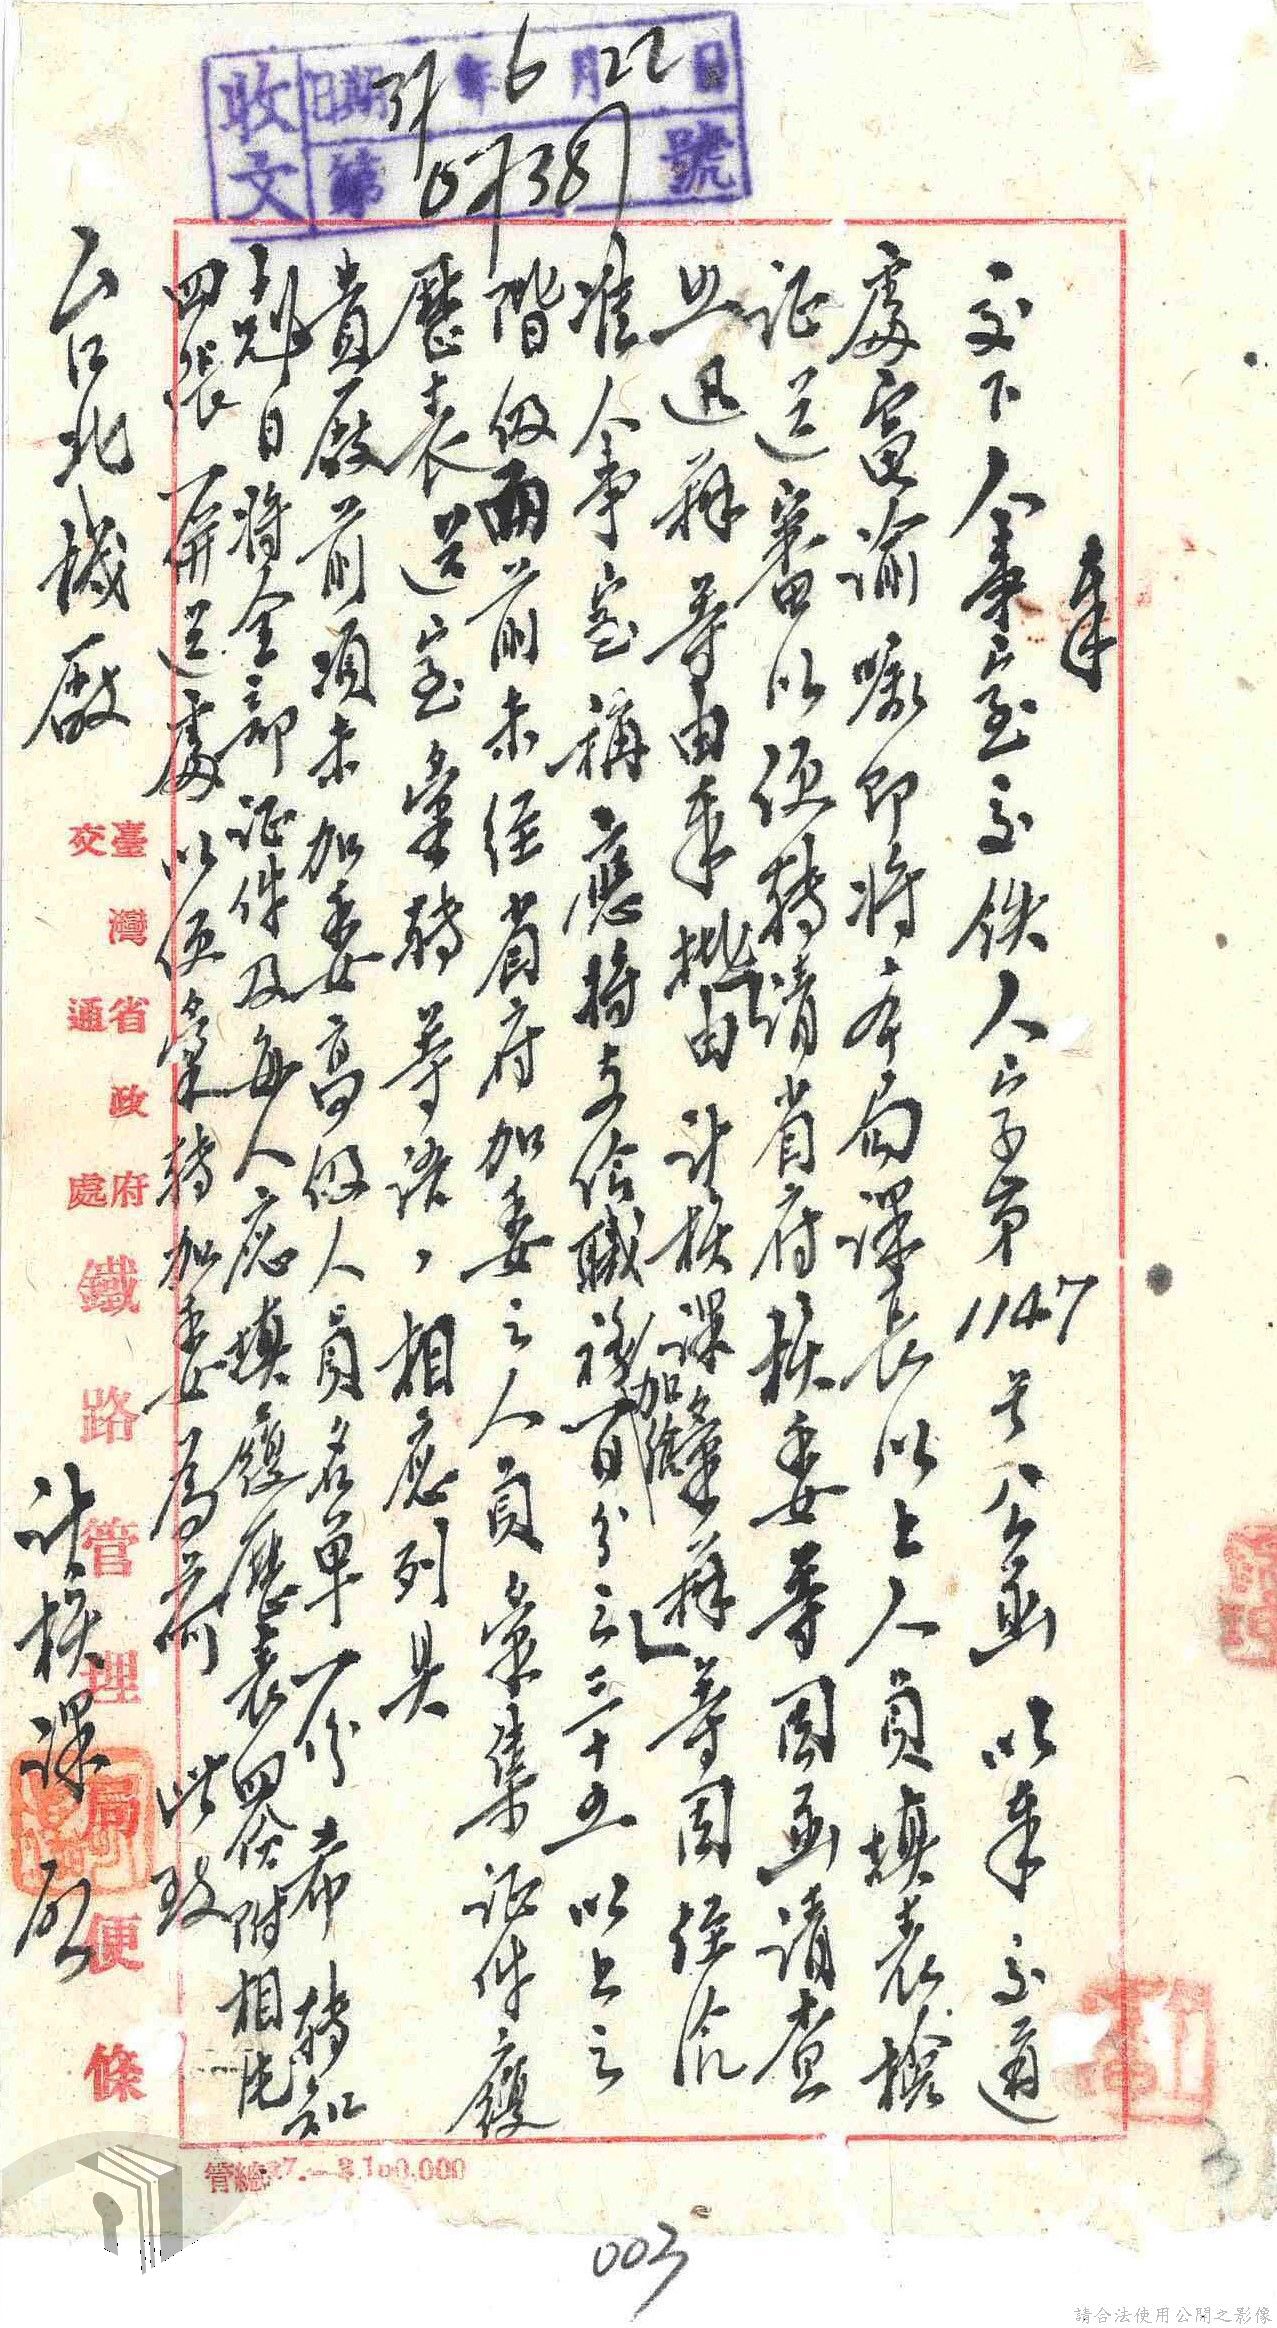 收文 日期 37年6月22日
第 號
奉
交下人事室交鉄人字第1147号公函以奉交通
處電諭嘱即将本局課長以上人員填表檢
証送審以便轉請省府核委等因函請查
照迅辦等由奉批由計核課彙辦等因經洽
加給
准人事室稱應将支給職務百分之三十五以上之
階級而前未經省府加委之人員彙集証件履
歷表送室彙轉等語,相應列具
貴廠前項未加委高級人員名單一份希轉知
剋日将全部証件及每人應填履歷表四份附相片
四張一併送處以便彙轉加委為荷 此致
台北機廠
計核課啟
臺灣省政府交通處鐵路管理局便條
管總37.一 100.000
003
請合法使用公開之影像